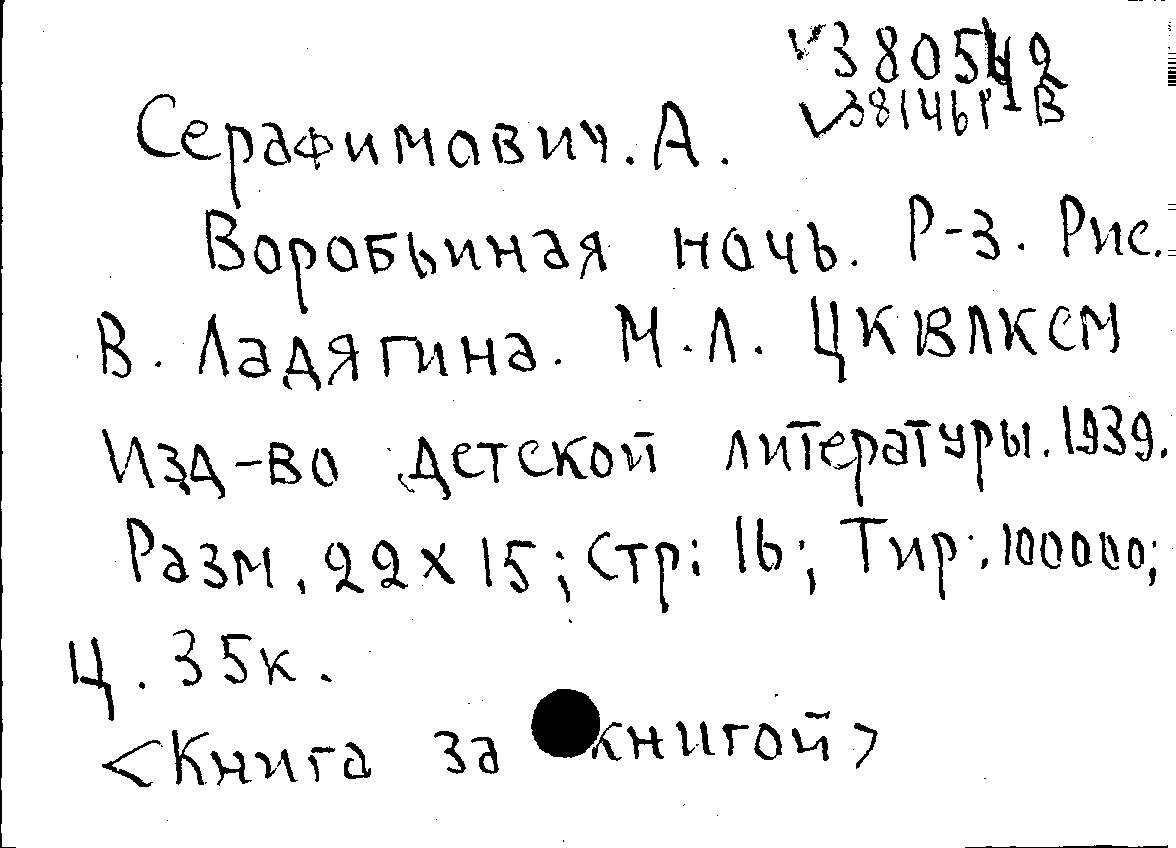 ✓380542
✓381461-В
Серафимович. А.
Воробьиная ночь. Р-з. Рис.
В. Ладягина. М.Л. ЦКВЛКСМ
Изд-во детской литературы. 1939.
Разм. 22х15; Стр: 16; Тир: 100000;
Ц. 35к.
<Книга за книгой>